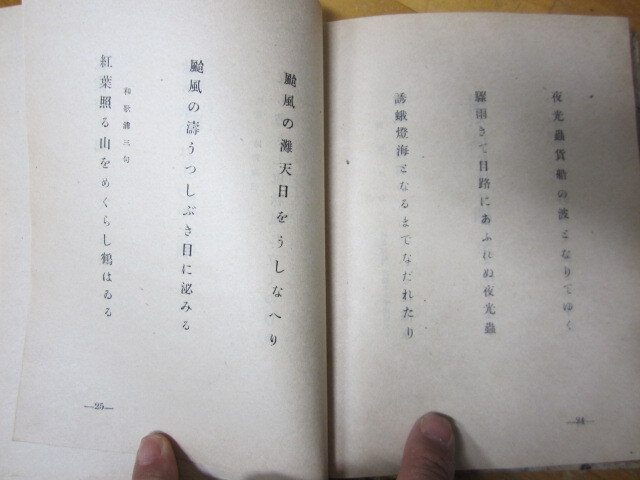 夜光蟲貨船の波となりてゆく
驟雨きて目路にあふれぬ夜光蟲
誘蛾燈海となるまでなだれたり
—24—
颱風の灘天日をうしなへり
颱風の濤うつしぶき目に泌みる
和歌浦三句
紅葉照る山をめぐらし鶴はゐる
—25—